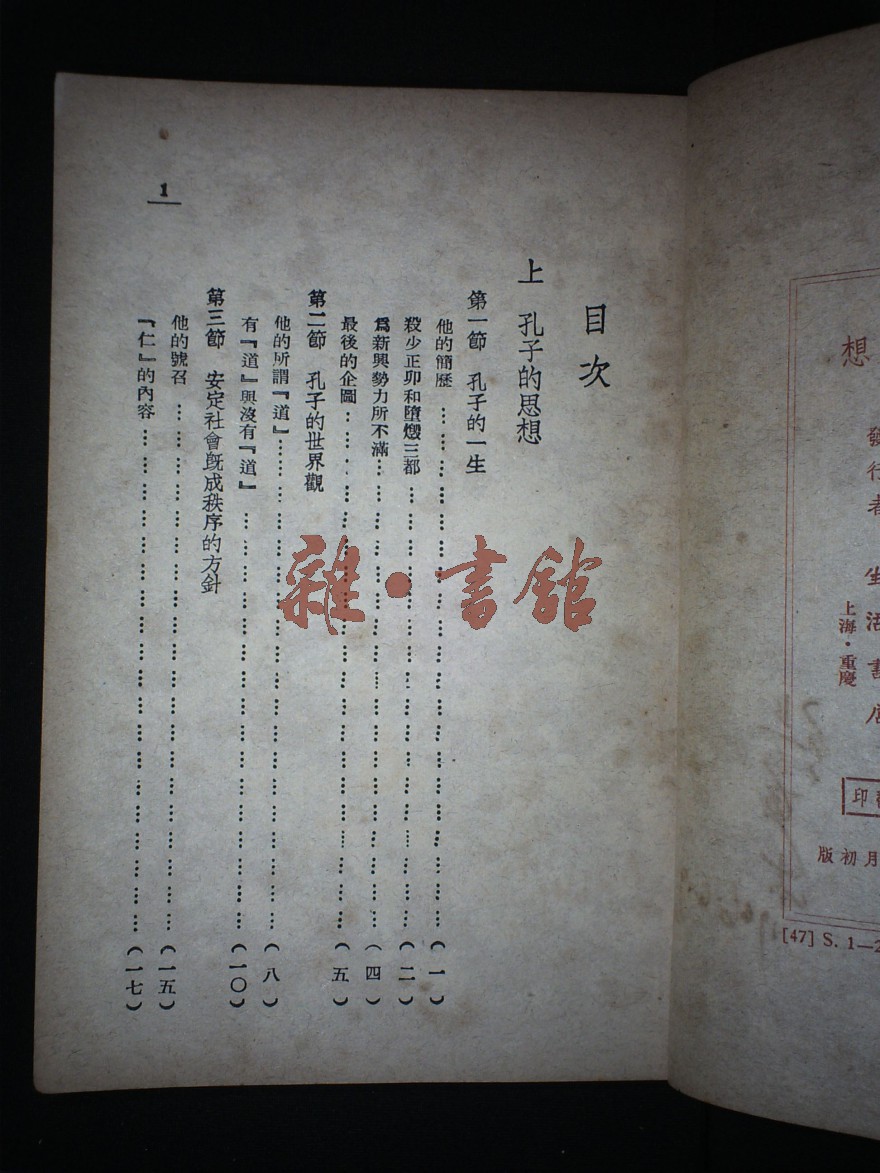 想
發行者 生活書店
上海·重慶
印
月初版
[47] S. 1—2
目次
上 孔子的思想
第一節 孔子的一生
他的簡歷………(一)
殺少正卯和墮燬三都………(二)
爲新興勢力所不滿………(四)
最後的企圖………(五)
第二節 孔子的世界觀
他的所謂『道』………(八)
有『道』與沒有『道』………(一〇)
第三節 安定社會旣成秩序的方針
他的號召………(一五)
『仁』的內容………(一七)
1
雜·書館